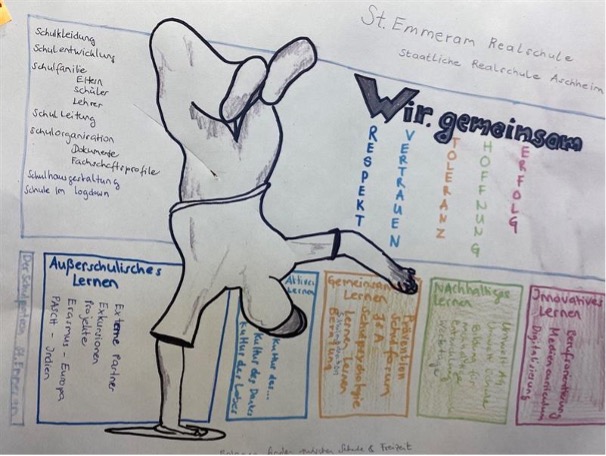 St. Emmeram Realschule
Staatliche Realschule Aschheim
Schulkleidung
Schulentwicklung
Schulfamilie
Eltern
Schüler
Lehrer
Schulleitung
Schulorganisation
Dokumente
Fachschaftsprofile
Schulhausgestaltung
Schule im Logdown
Wir. gemeinsam
RESPEKT
VERTRAUEN
TOLERANZ
HOFFNUNG
ERFOLG
Außerschulisches
Lernen
Externe Partner
Exkursionen
Projekte
Erasmus - Europa
PASCH - Indien
Aktives
Lernen
Kultur des...
Kultur des Dankes
Kultur des Lobes
Gemeinsam
Lernen
Prävention
Schulforum
JaA
Schulpsychologie
Lernen Lernen
Beratung
Nachhaltiges
Lernen
Umwelt AG
Innovatives
Lernen
Berufsorientierung
Mediencurriculum
Digitalisierung
finden zwischen Schule & Freizeit